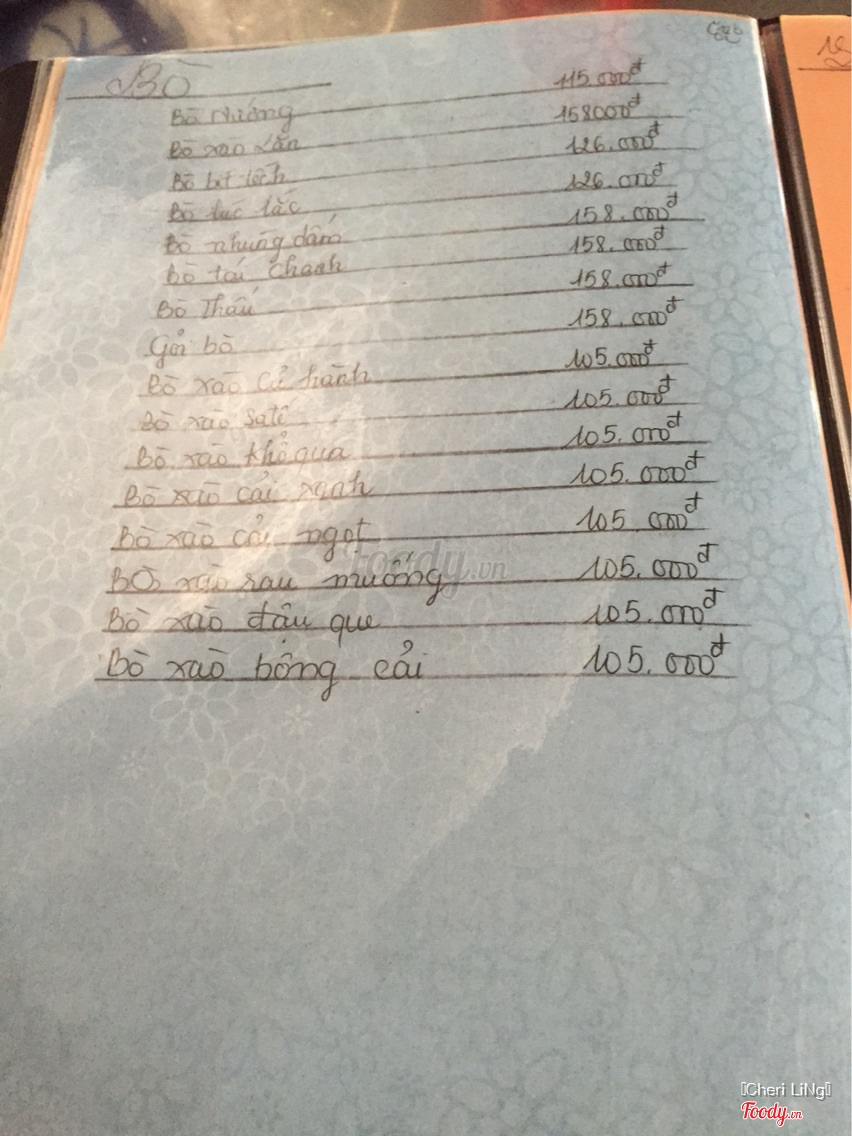 Bò
Bò Nướng 115.000đ
Bò xào Lăn 158000đ
Bò bít tếch 126.000đ
Bò lúc lắc 126.000đ
Bò nhúng dấm 158.000đ
Bò tái Chanh 158.000đ
Bò Thấu 158.000đ
Gỏi bò 158.000đ
Bò xào Củ hành 105.000đ
Bò xào Satế 105.000đ
Bò xào khổ qua 105.000đ
Bò xào cải xanh 105.000đ
Bò xào cải ngọt 105 000đ
Bò xào rau muống 105.000đ
Bò xào đậu que 105.000đ
Bò xào bông cải 105.000đ
Foody.vn
[Cheri LiNg]
Foody.vn